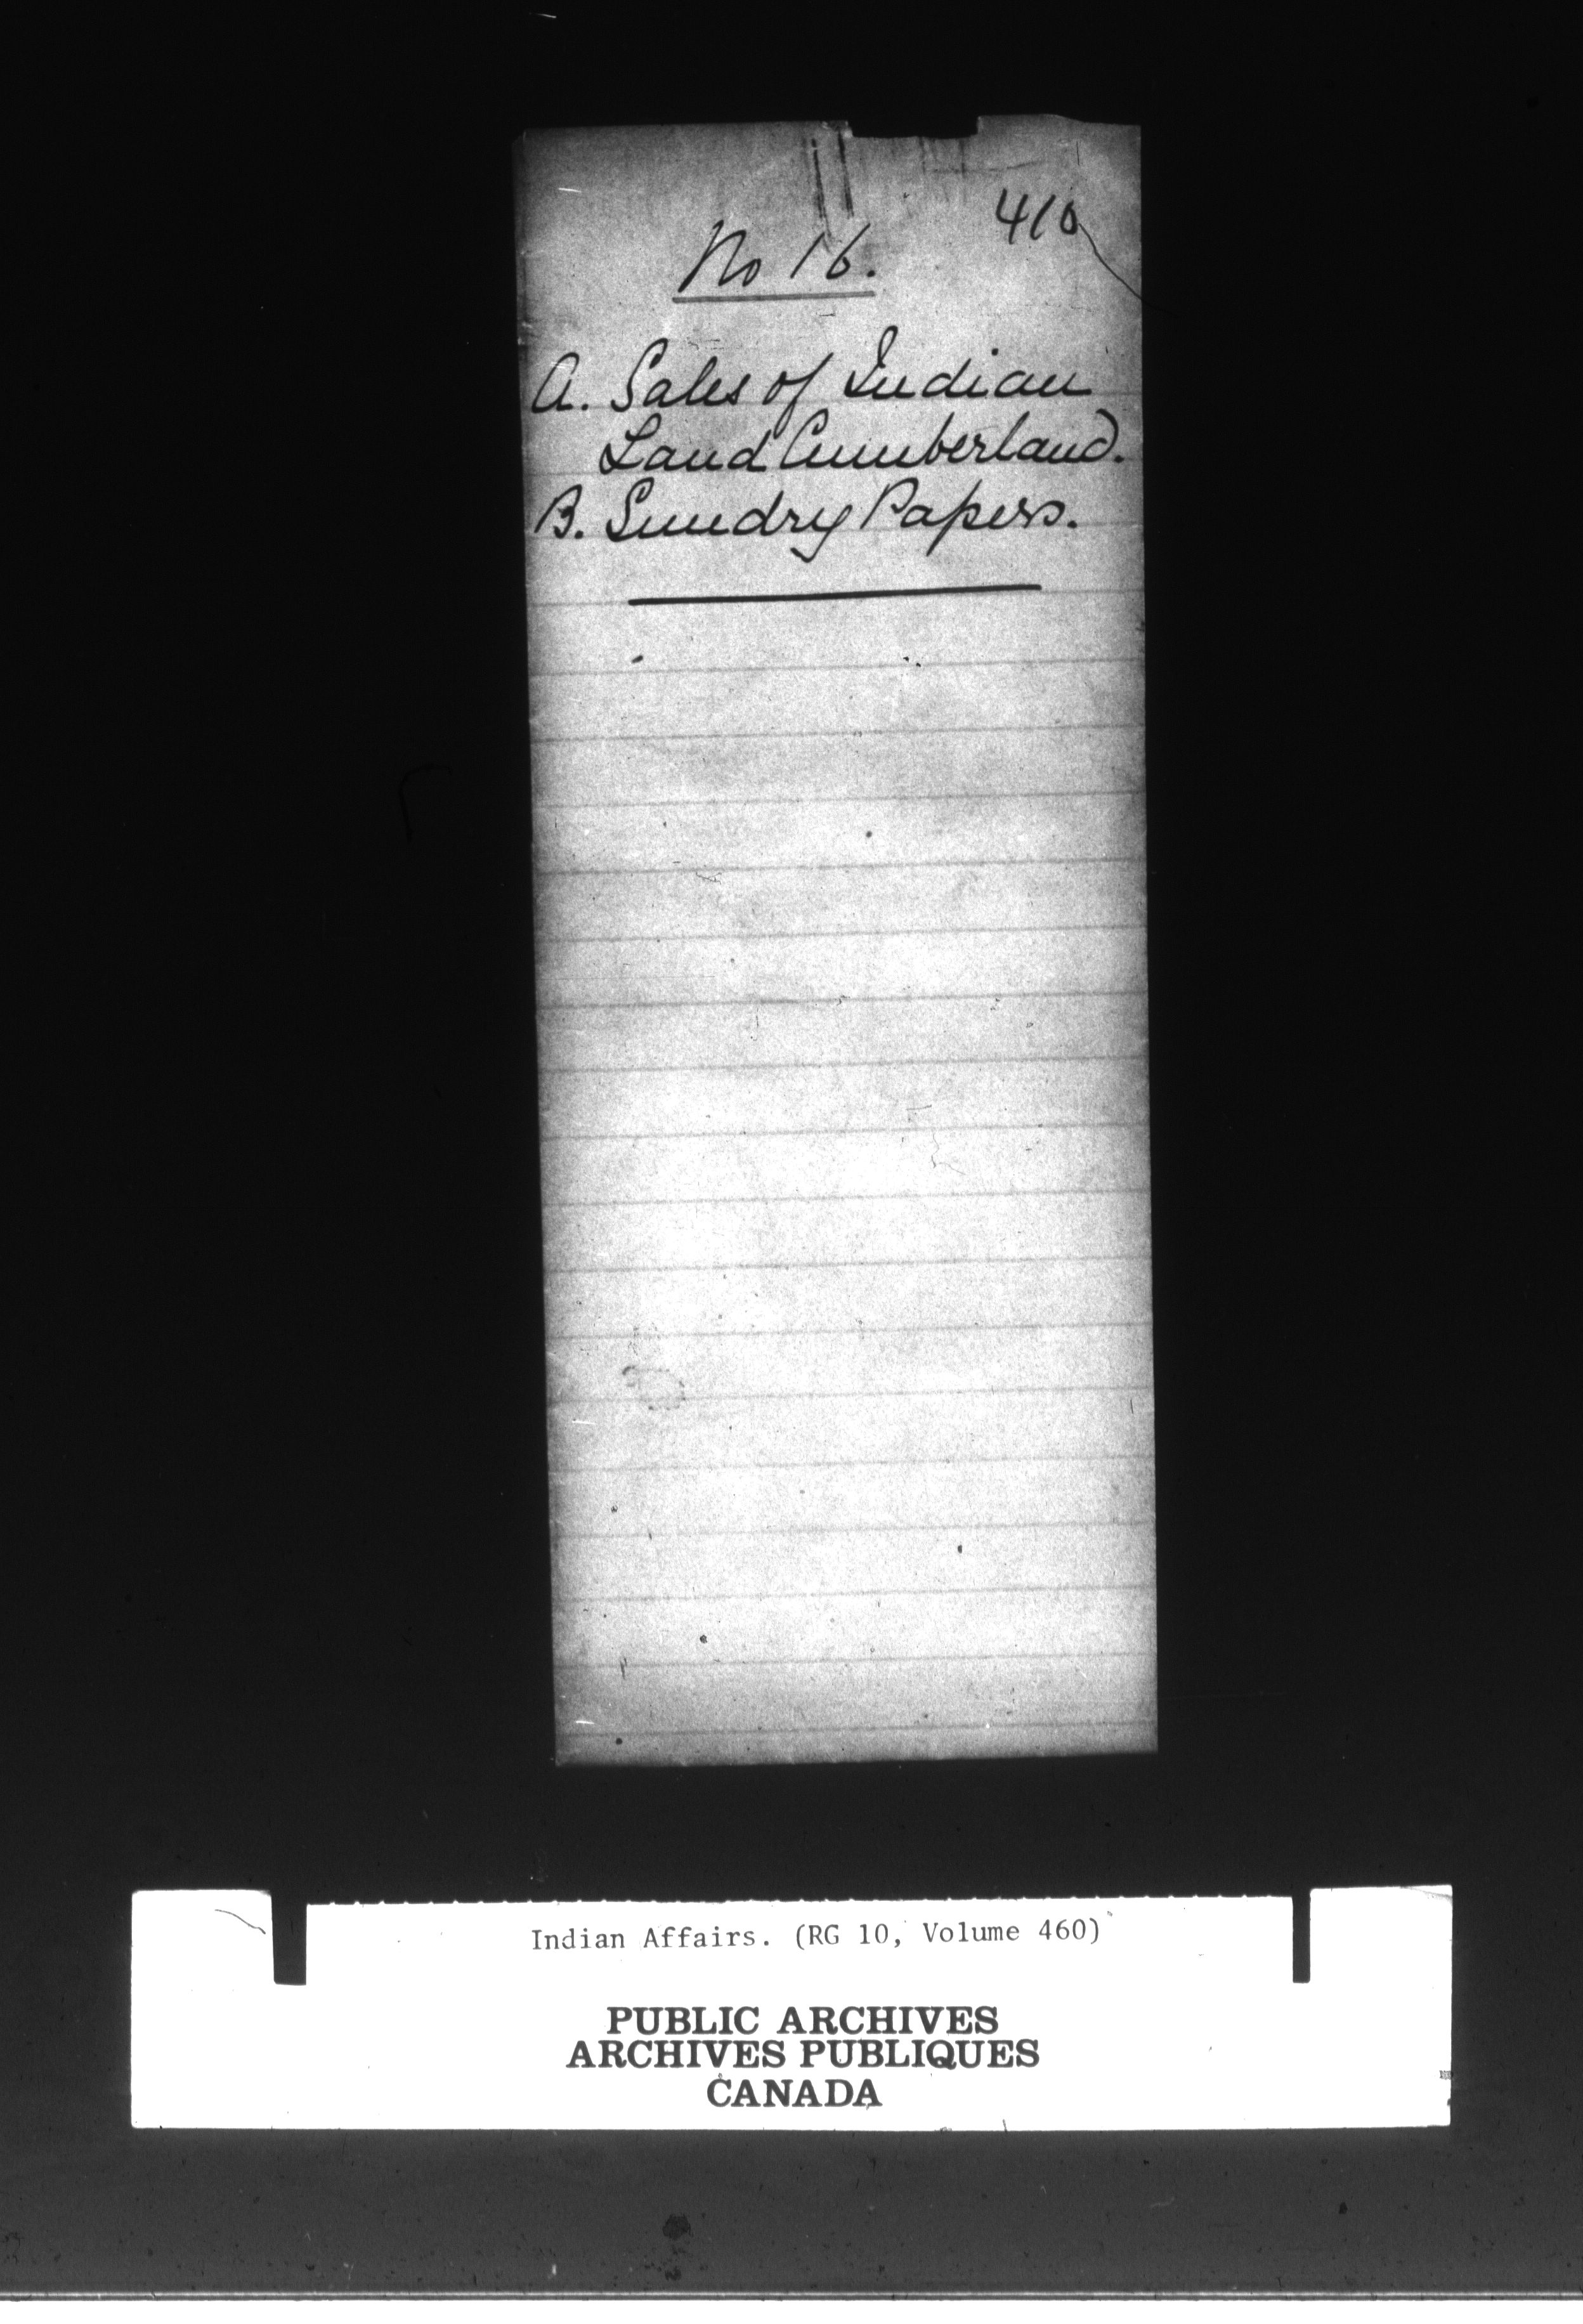 410
No 16.
A. Sales of Indian
Land Cumberland.
B. Sundry Papers.
Indian Affairs. (RG 10, Volume 460)
PUBLIC ARCHIVES
ARCHIVES PUBLIQUES
CANADA